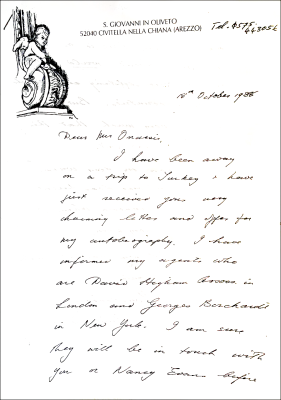 S. GIOVANNI IN OLIVETO
52040 CIVITELLA NELLA CHIANA (AREZZO)
Tel. 0575
443056
October 1988
Dear Mrs Onassis,
I have been away
on a trip to Turkey & have
just received your very
charming letter and offer for
my autobiography. I have
informed my agents who
are David Higham Assocs. in
London and Georges Borchardt
in New York. I am sure
they will be in touch with
you or Nancy Evans before